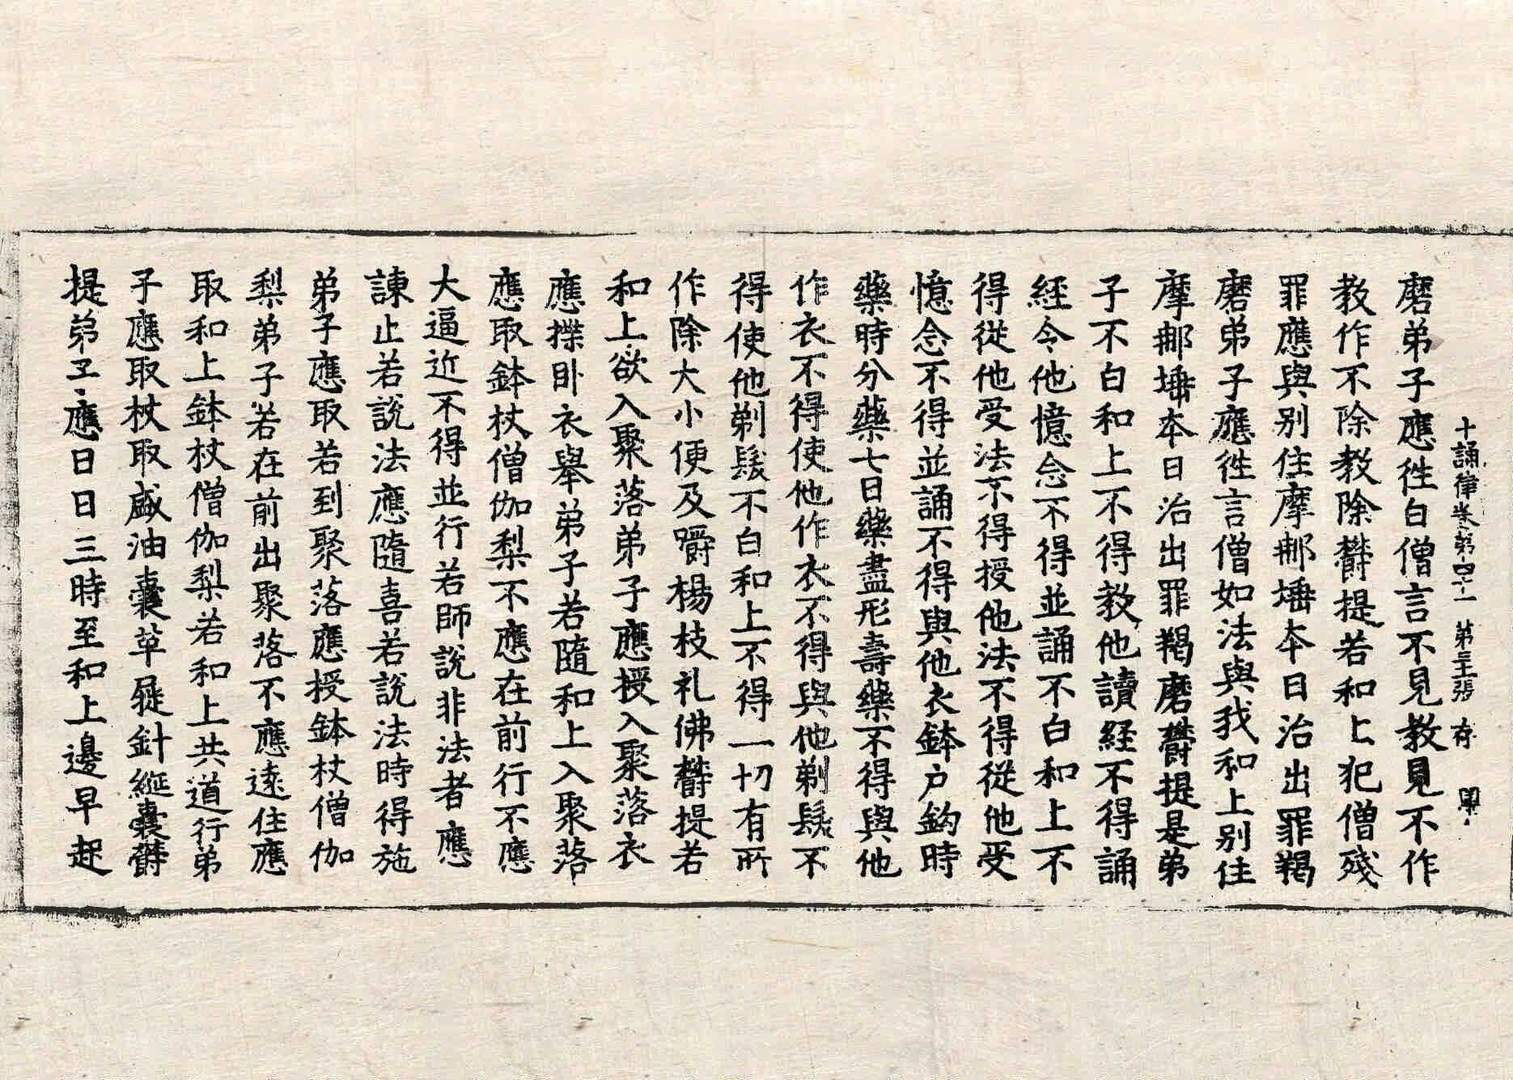 十誦律卷第四十一 第三十二張 存
磨弟子應徃白僧言不見教見不作
教作不除教除欝提若和上犯僧殘
罪應與別住摩那埵本日治出罪羯
磨弟子應徃言僧如法與我和上別住
摩那埵本日治出罪羯磨欝提是弟
子不白和上不得教他讀經不得誦
經令他憶念不得並誦不白和上不
得從他受法不得授他法不得從他受
憶念不得並誦不得與他衣鉢户鈎時
藥時分藥七日藥盡形壽藥不得與他
作衣不得使他作衣不得與他剃髮不
得使他剃髮不白和上不得一切有所
作除大小便及嚼楊枝礼佛欝提若
和上欲入聚落弟子應授入聚落衣
應揲卧衣舉弟子若隨和上入聚落
應取鉢杖僧伽梨不應在前行不應
大逼近不得並行若師說非法者應
諫止若說法應隨喜若說法時得施
弟子應取若到聚落應授鉢杖僧伽
梨弟子若在前出聚落不應遠住應
取和上鉢杖僧伽梨若和上共道行弟
子應取杖取盛油囊革屣針綖囊欝
提弟子應日日三時至和上邊早起